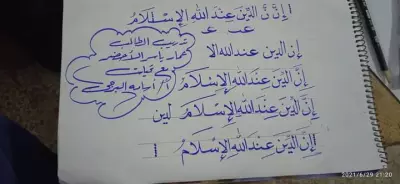 إِنَّ الدِّينَ عِنْدَ اللهِ الإِسْلَامُ
إن الدين عند الله الا
إِنَّ الدِّينَ عِنْدَ اللهِ الإِسْلَامُ
إِنَّ الدِّينَ عِنْدَ اللهِ الإِسْلَامُ لين
إِنَّ الدِّينَ عِنْدَ اللهِ الإِسْلَامُ
تدريب الطالب
عمار ياسر الأخضر
2021/6/29 21:20